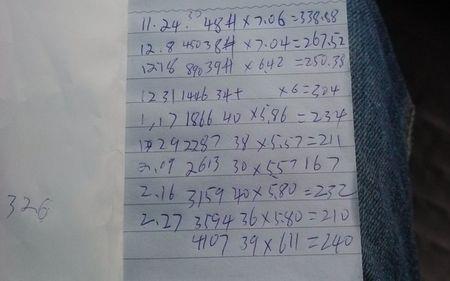 11.24. 37 48# × 7.06 = 338.88
12.8 450 38# × 7.04 = 267.52
12.18 890 39# × 6.42 = 250.38
12 31 1446 34+ × 6 = 204
1,17 1866 40 × 5.86 = 234
1 29 2287 38 × 5.57 = 211
2.09 2613 30 × 5.57 167
2.16 3159 40 × 5.80 = 232
2.27 3594 36 × 5.80 = 210
4107 39 × 611 = 240
326